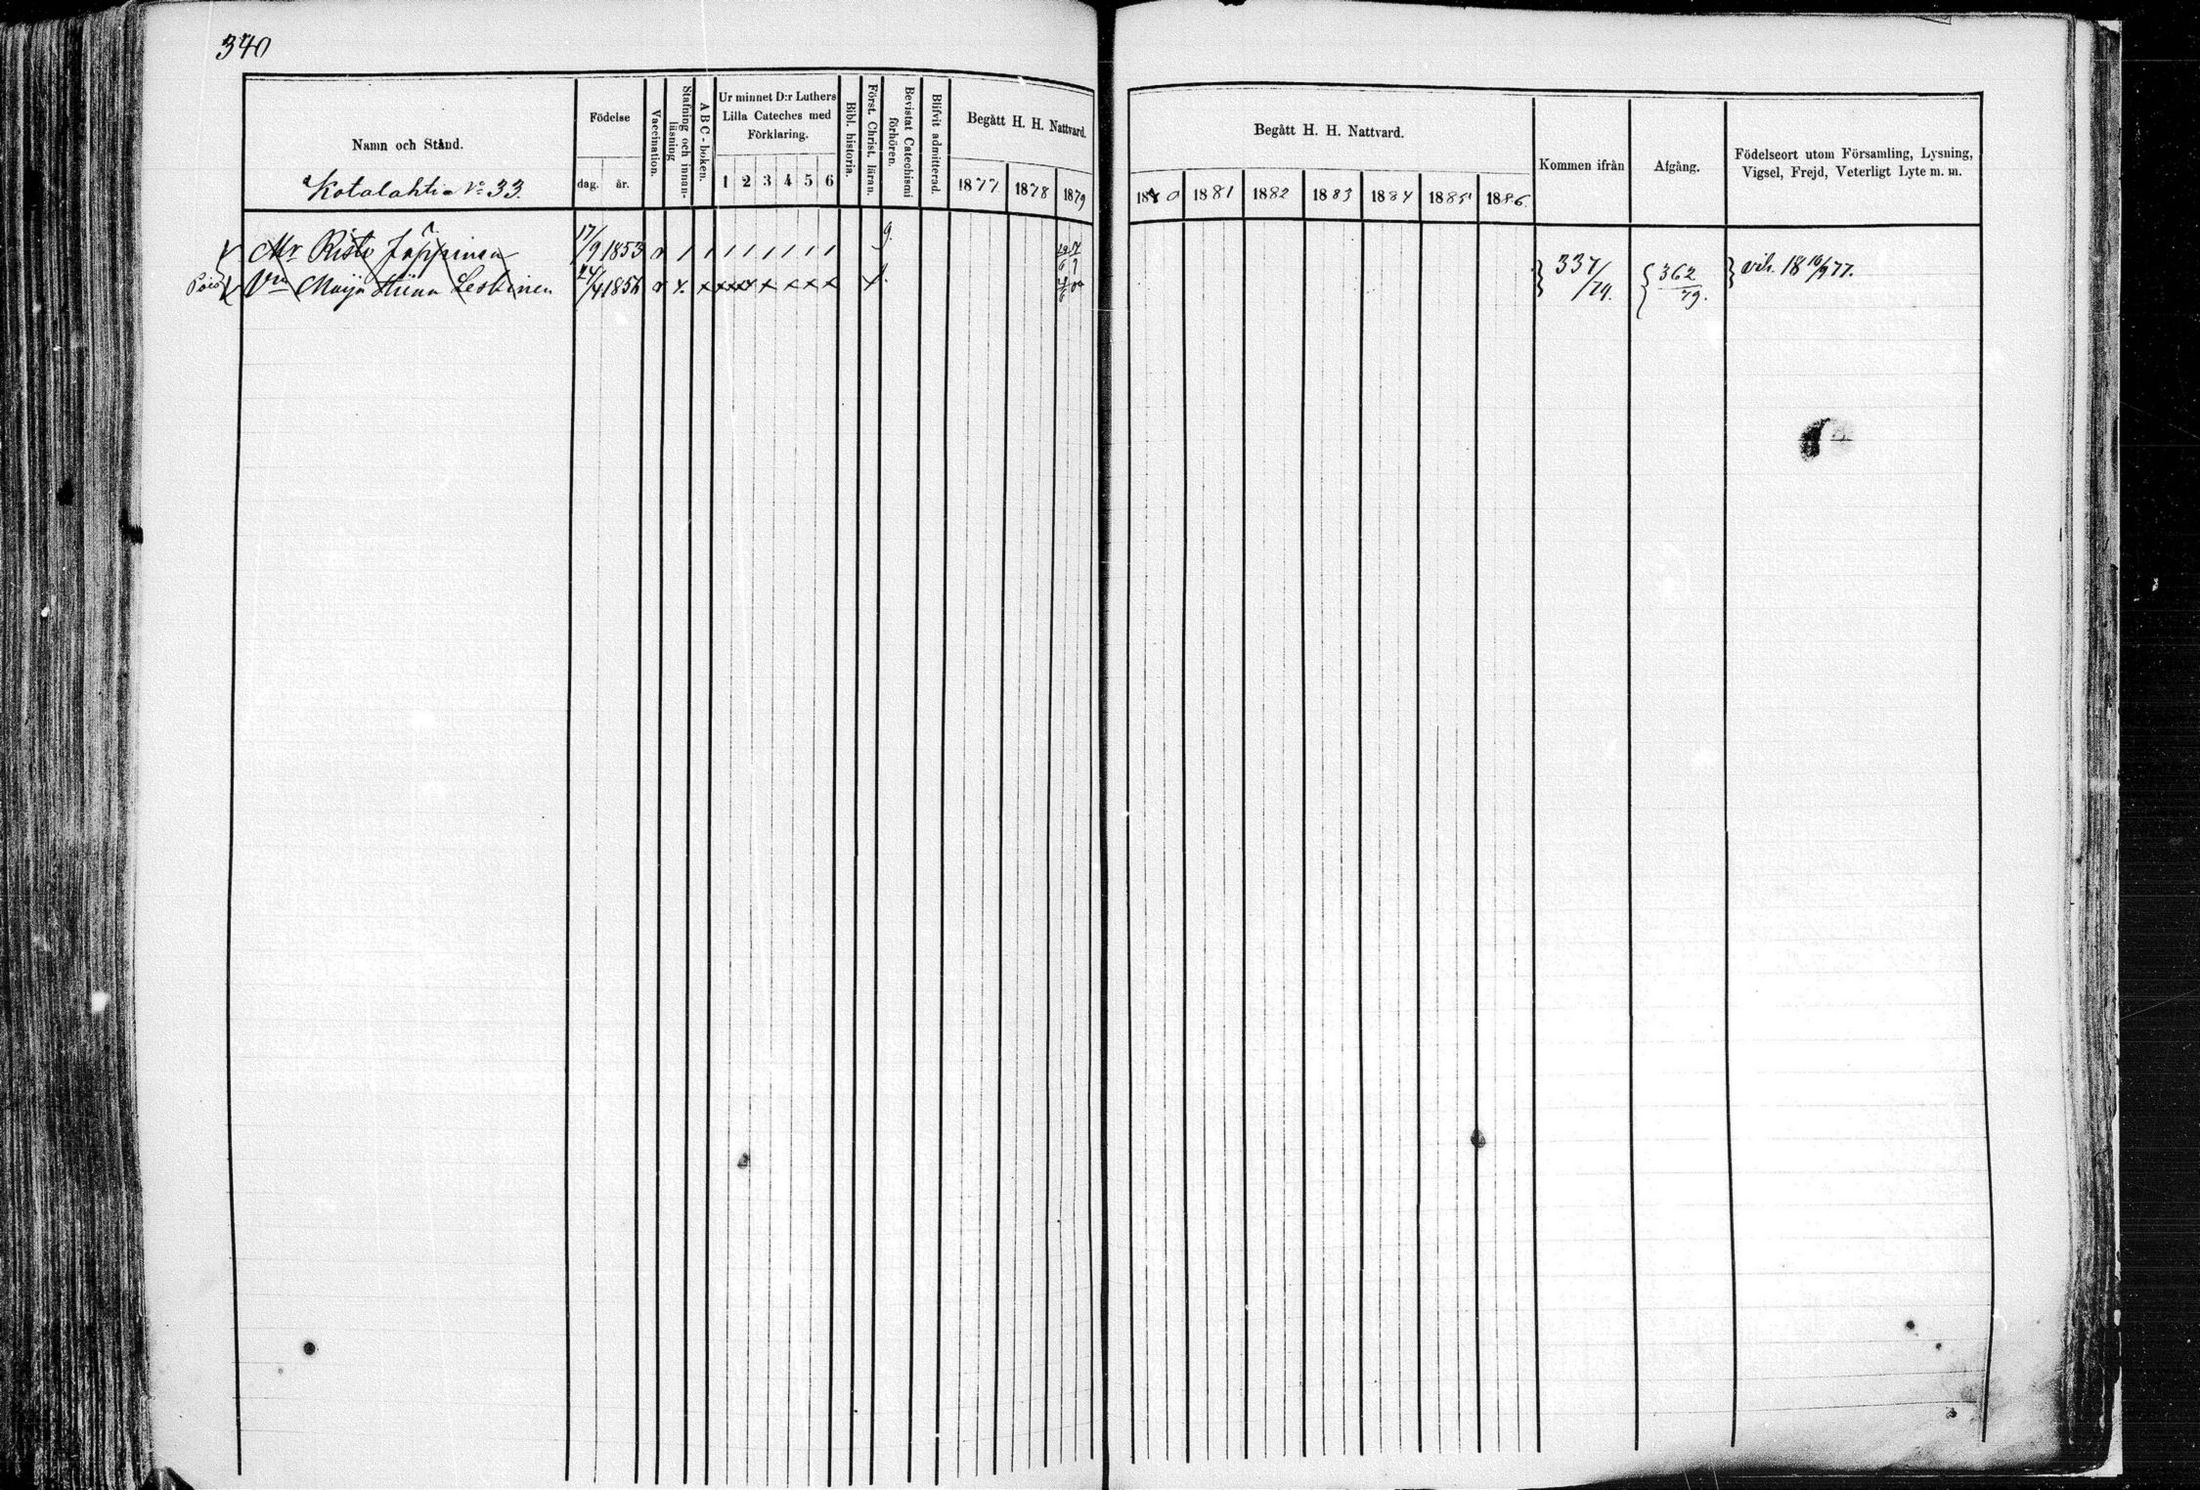 340
Namn och Stånd.
Kotalahti No 33.
Födelse
dag. år.
Vaccination.
Stafning och innan-läsning
ABC-boken.
Ur minnet D:r Luthers
Lilla Cateches med
Förklaring.
1 2 3 4 5 6
Bibl. historia.
Först. Christ. läran.
Bevistat Catechismi förhören.
Blifvit admitterad.
Begått H. H. Nattvard.
1877 1878 1879
Begått H. H. Nattvard.
1880 1881 1882 1883 1884 1885 1886
Kommen ifrån
Afgång.
Födelseort utom Församling, Lysning,
Vigsel, Frejd, Veterligt Lyte m. m.
Mr Risto Jäppinen 17/9 1853
Vm Maija Stiina Leskinen 24/4 1856
337/79.
362/79.
vih. 18 16/9 77.